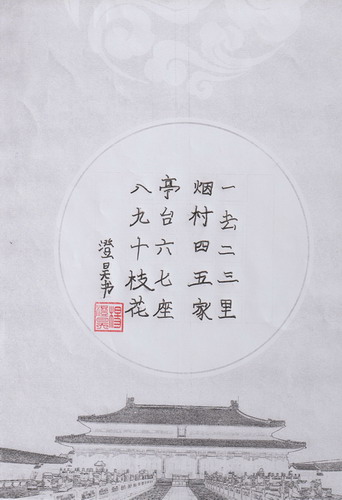 一去二三里
烟村四五家
亭台六七座
八九十枝花
澄昊书